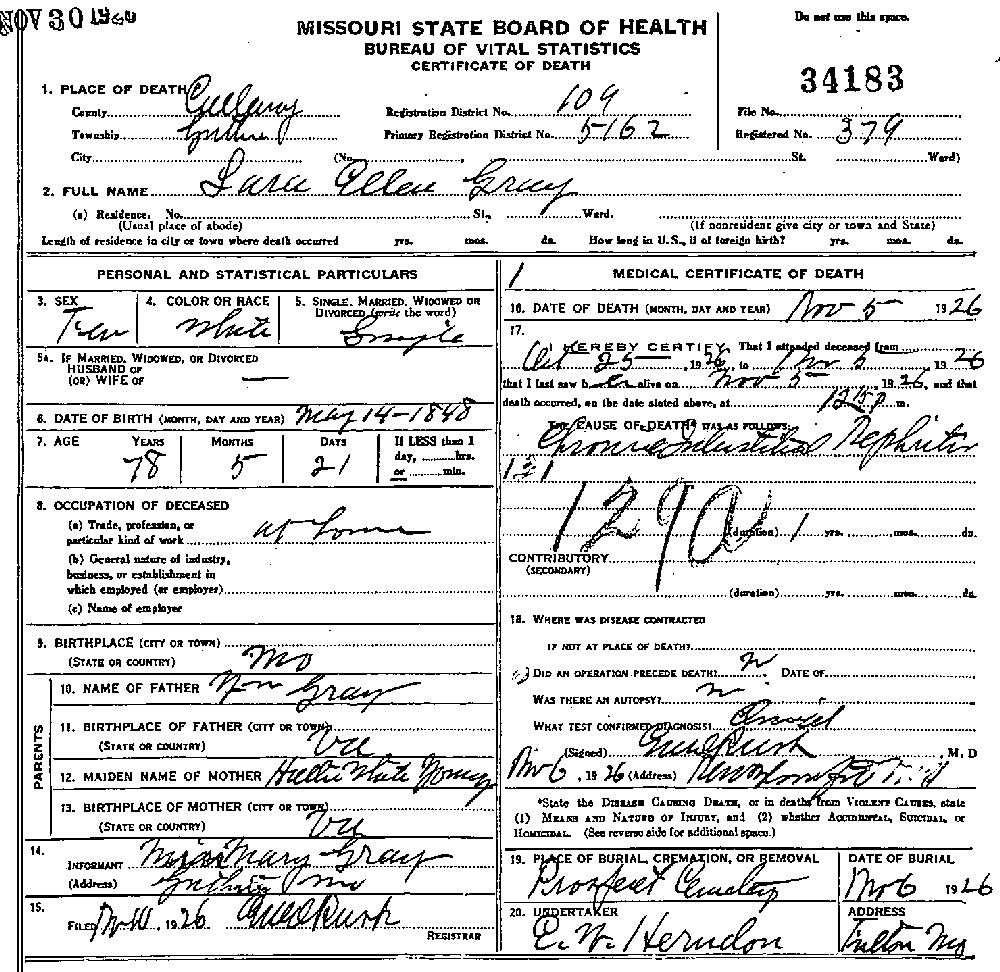 NOV 30 19
MISSOURI STATE BOARD OF HEALTH
BUREAU OF VITAL STATISTICS
CERTIFICATE OF DEATH
Do not use this space.
34183
1. PLACE OF DEATH
County Registration District No. 109 File No.
Township Guthrie Primary Registration District No. 5162 Registered No. 379
City (No. St. Ward)
2. FULL NAME Sara Ellen Gray
(a) Residence. No. St., Ward.
(Usual place of abode) (If nonresident give city or town and State)
Length of residence in city or town where death occurred yrs. mos. ds. How long in U.S., if of foreign birth? yrs. mos. ds.
PERSONAL AND STATISTICAL PARTICULARS
3. SEX 4. COLOR OR RACE 5. SINGLE, MARRIED, WIDOWED OR
DIVORCED (write the word)
Fem White Single
5A. IF MARRIED, WIDOWED, OR DIVORCED
HUSBAND OF
(OR) WIFE OF —
6. DATE OF BIRTH (MONTH, DAY AND YEAR) May 14-1848
7. AGE YEARS MONTHS DAYS If LESS than 1
day, hrs.
or min.
78 5 21
8. OCCUPATION OF DECEASED
(a) Trade, profession, or
particular kind of work at home
(b) General nature of industry,
business, or establishment in
which employed (or employer)
(c) Name of employer
9. BIRTHPLACE (CITY OR TOWN)
(STATE OR COUNTRY) Mo
PARENTS
10. NAME OF FATHER Wm Gray
11. BIRTHPLACE OF FATHER (CITY OR TOWN)
(STATE OR COUNTRY) Va
12. MAIDEN NAME OF MOTHER
13. BIRTHPLACE OF MOTHER (CITY OR TOWN)
(STATE OR COUNTRY) Va
14.
INFORMANT Miss Mary Gray
(Address) Guthrie Mo
15.
FILED 1926
REGISTRAR
1
MEDICAL CERTIFICATE OF DEATH
16. DATE OF DEATH (MONTH, DAY AND YEAR) Nov 5 1926
17.
I HEREBY CERTIFY, That I attended deceased from
Oct 25, 1926, to Nov 5, 1926
that I last saw her alive on Nov 5, 1926, and that
death occurred, on the date stated above, at m.
THE CAUSE OF DEATH* WAS AS FOLLOWS:
Chronic Interstitial Nephritis
131
129a
(duration) 1 yrs. mos. ds.
CONTRIBUTORY
(SECONDARY)
(duration) yrs. mos. ds.
18. WHERE WAS DISEASE CONTRACTED
IF NOT AT PLACE OF DEATH?
DID AN OPERATION PRECEDE DEATH? DATE OF
WAS THERE AN AUTOPSY?
WHAT TEST CONFIRMED DIAGNOSIS?
(Signed) , M. D
Nov 6, 1926 (Address)
*State the DISEASE CAUSING DEATH, or in deaths from VIOLENT CAUSES, state
(1) MEANS AND NATURE OF INJURY, and (2) whether ACCIDENTAL, SUICIDAL, or
HOMICIDAL. (See reverse side for additional space.)
19. PLACE OF BURIAL, CREMATION, OR REMOVAL DATE OF BURIAL
Prospect Cemetery Nov 6 1926
20. UNDERTAKER ADDRESS
E. W. Herndon Fulton Mo